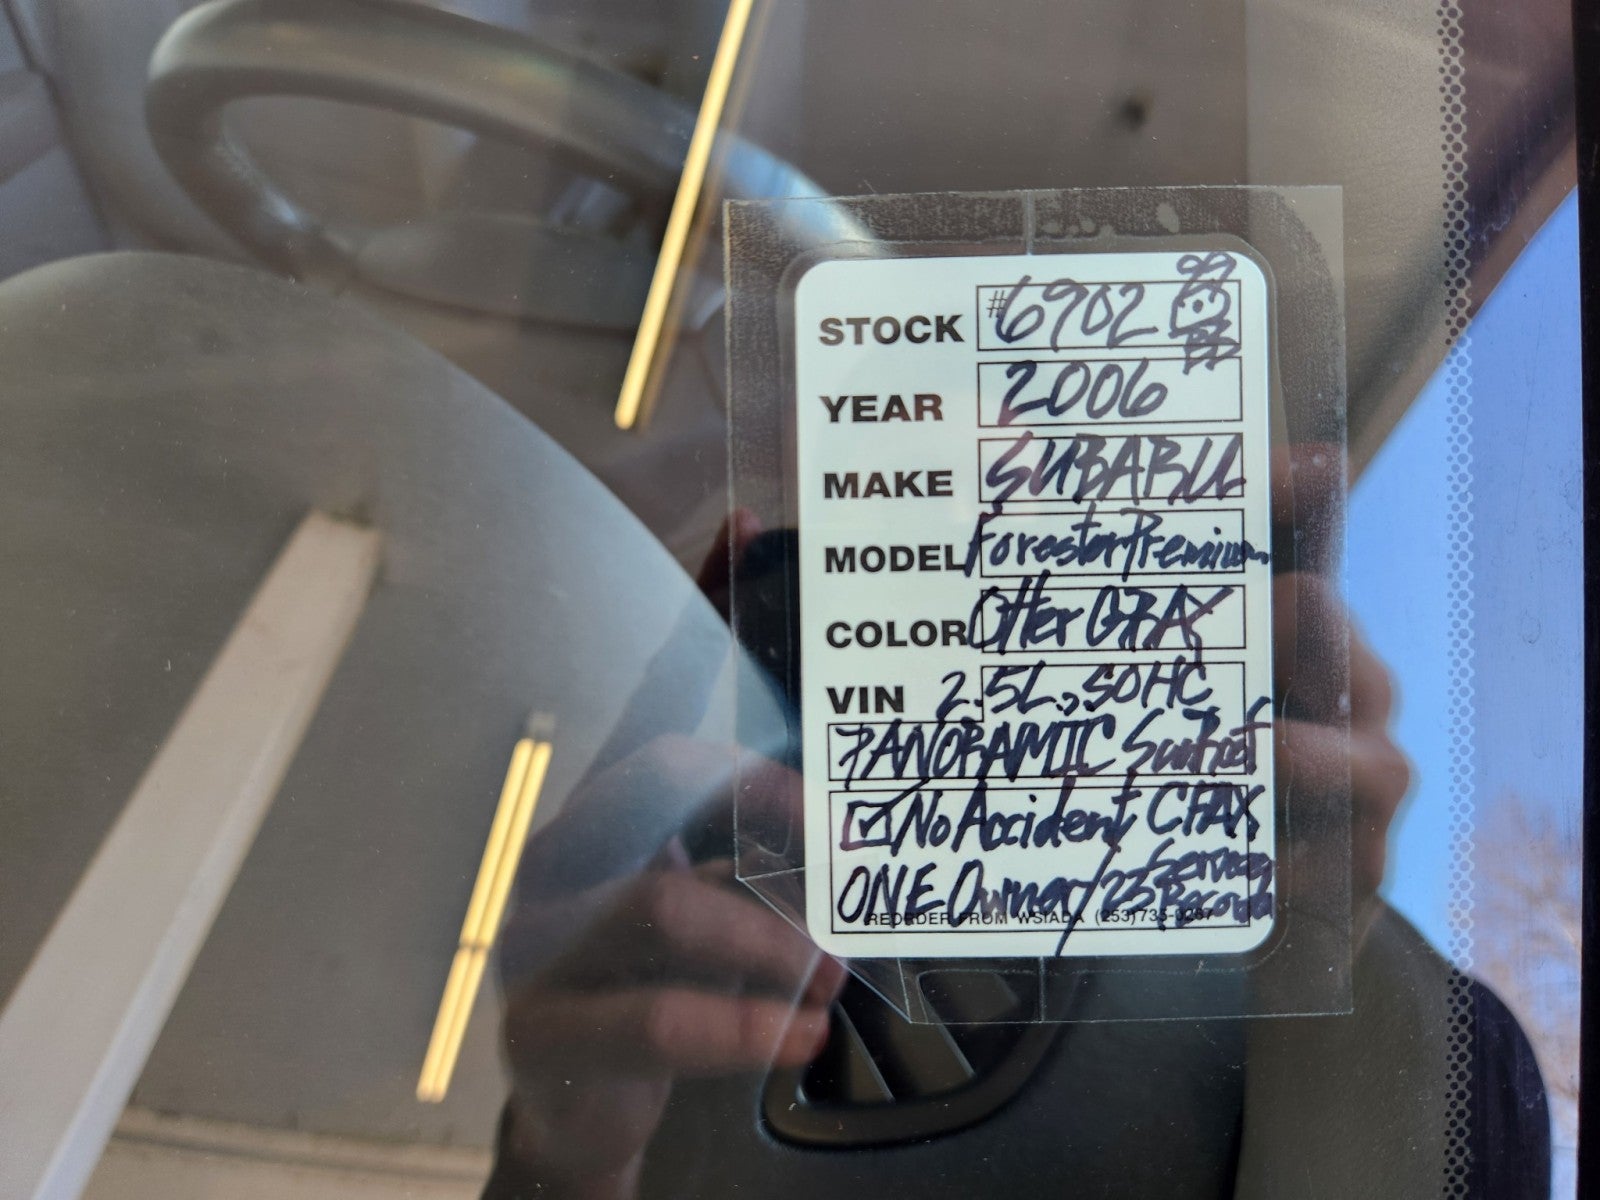 STOCK #6902
YEAR 2006
MAKE SUBARU
MODEL Forester Premium
COLOR Otter GRAY
VIN 2.5L, SOHC
PANORAMIC SunRoof
☑ No Accident CFAX
ONE Owner/23 Service Records
REORDER FROM WSIADA (253)735-0267